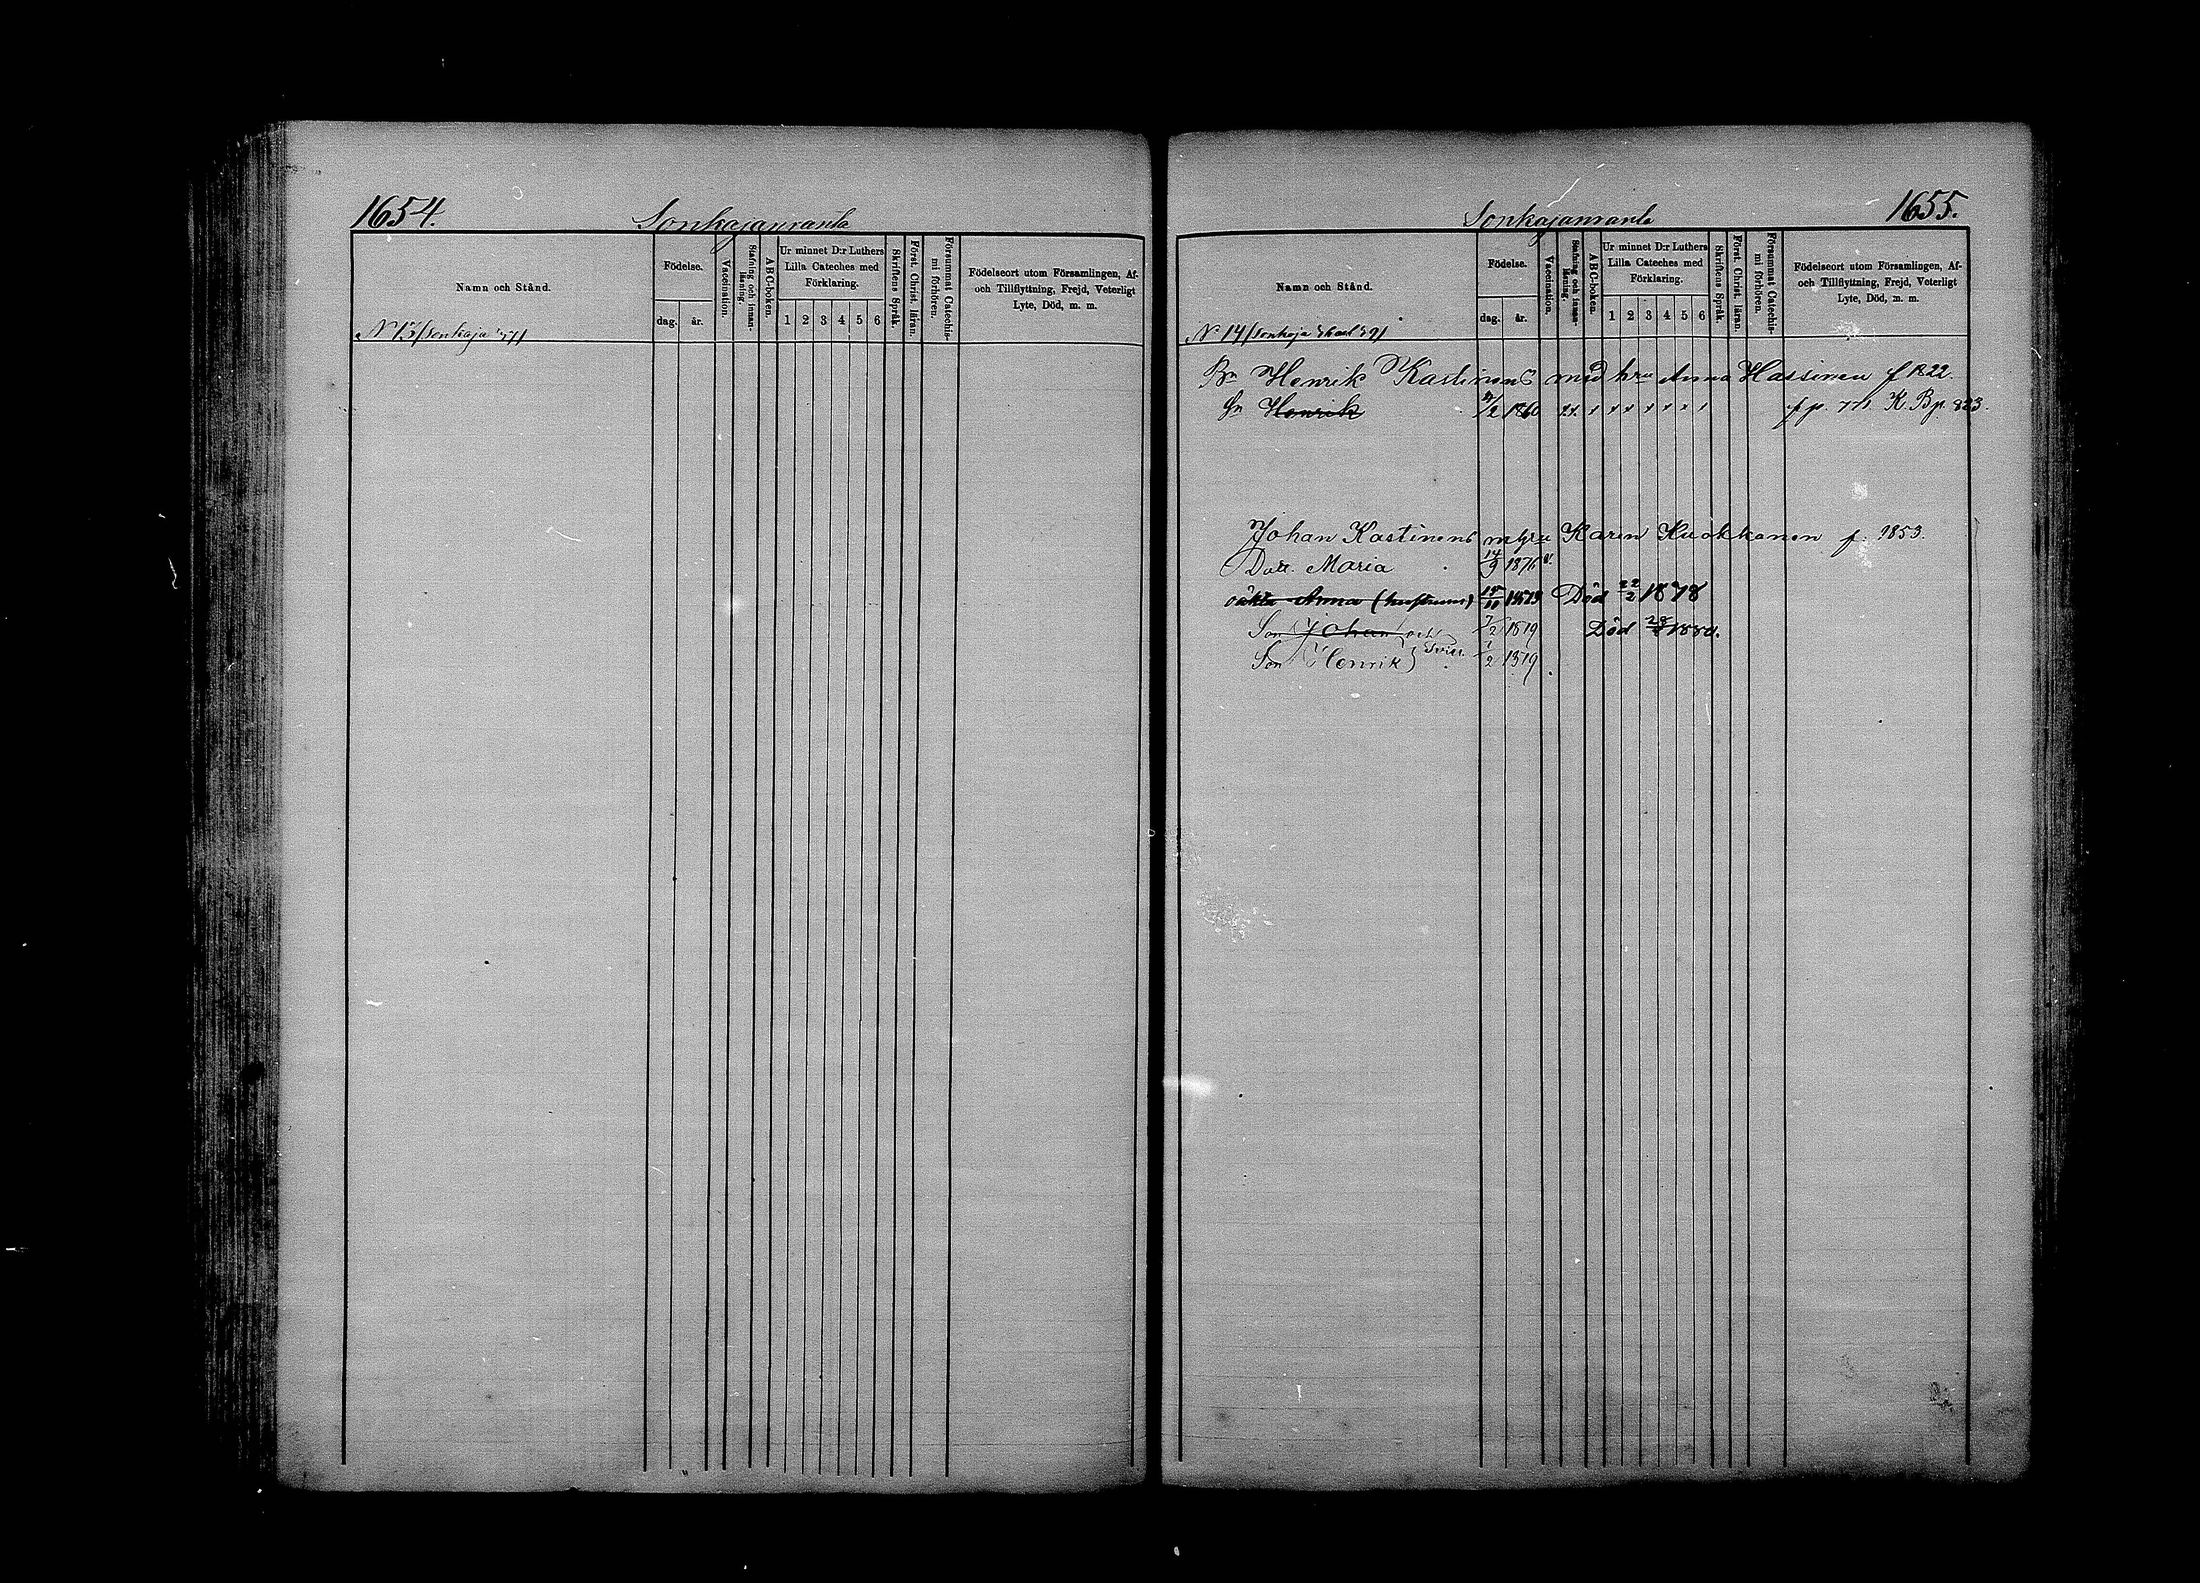 1654.
Sonkajanranta
Namn och Stånd.
Födelse.
dag.
år.
Vaccination.
Stafning och innan-
läsning.
ABC-boken.
Ur minnet D:r Luthers
Lilla Cateches med
Förklaring.
1 2 3 4 5 6
Skriftens Språk.
Först. Christ. läran.
Försummat Catechis-
mi förhören.
Födelseort utom Församlingen, Af-
och Tillflyttning, Frejd, Veterligt
Lyte, Död, m. m.
N 13/Sonkaja
1655.
Sonkajanranta
Namn och Stånd.
Födelse.
dag.
år.
Vaccination.
Stafning och innan-
läsning.
ABC-boken.
Ur minnet D:r Luthers
Lilla Cateches med
Förklaring.
1 2 3 4 5 6
Skriftens Språk.
Först. Christ. läran.
Försummat Catechis-
mi förhören.
Födelseort utom Församlingen, Af-
och Tillflyttning, Frejd, Veterligt
Lyte, Död, m. m.
N 14/Sonkaja
Bn Henrik Kastinens med hru Anna Hassinen f 1822.
Sn Henrik 1860 K. Bp. 823.
Johan Kastinens m hru Karin Kuokkanen f. 1853.
Dott. Maria 14/9 1876
oäkta Anna Död 22/2 1878
Son Johan och 7/2 1879 Död 1880.
Son Henrik 7/2 1879